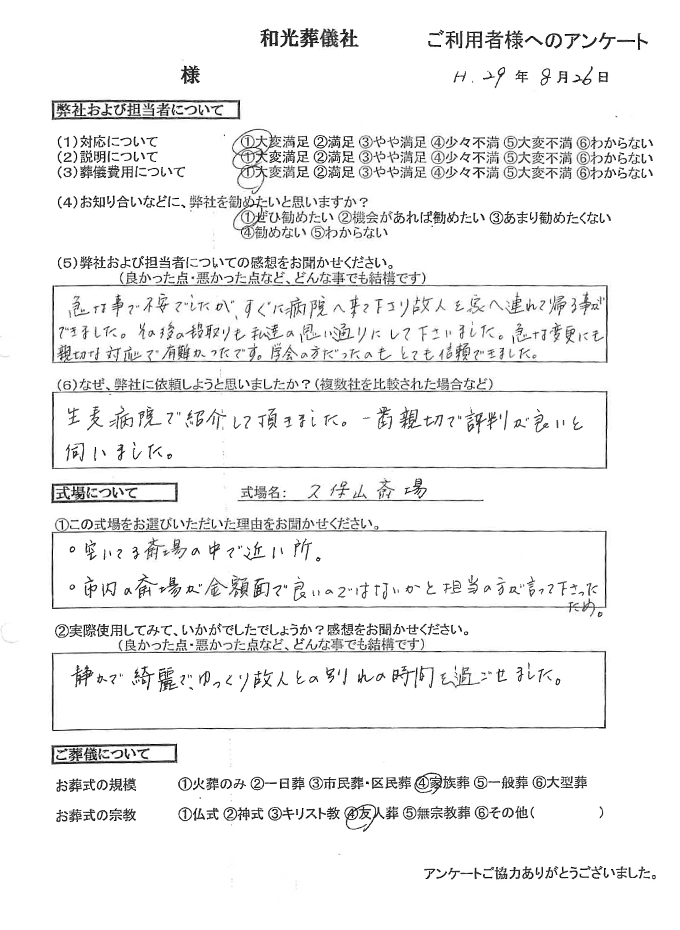 和光葬儀社 ご利用者様へのアンケート
様 H.29年8月26日
弊社および担当者について
(1)対応について ①大変満足 ②満足 ③やや満足 ④少々不満 ⑤大変不満 ⑥わからない
(2)説明について ①大変満足 ②満足 ③やや満足 ④少々不満 ⑤大変不満 ⑥わからない
(3)葬儀費用について ①大変満足 ②満足 ③やや満足 ④少々不満 ⑤大変不満 ⑥わからない
(4)お知り合いなどに、弊社を勧めたいと思いますか?
①ぜひ勧めたい ②機会があれば勧めたい ③あまり勧めたくない
④勧めない ⑤わからない
(5)弊社および担当者についての感想をお聞かせください。
(良かった点・悪かった点など、どんな事でも結構です)
急な事で不安でしたが、すぐに病院へ来て下さり故人を家へ連れて帰る事が
できました。その後の段取りも私達の思い通りにして下さいました。急な変更にも
親切な対応で有難かったです。学会の方だったのもとても信頼できました。
(6)なぜ、弊社に依頼しようと思いましたか?(複数社を比較された場合など)
生麦病院で紹介して頂きました。一番親切で評判が良いと
伺いました。
式場について 式場名: 久保山斎場
①この式場をお選びいただいた理由をお聞かせください。
・空いてる斎場の中で近い所。
・市内の斎場が金額面で良いのではないかと担当の方が言って下さった
ため。
②実際使用してみて、いかがでしたでしょうか?感想をお聞かせください。
(良かった点・悪かった点など、どんな事でも結構です)
静かで綺麗で、ゆっくり故人との別れの時間を過ごせました。
ご葬儀について
お葬式の規模 ①火葬のみ ②一日葬 ③市民葬・区民葬 ④家族葬 ⑤一般葬 ⑥大型葬
お葬式の宗教 ①仏式 ②神式 ③キリスト教 ④友人葬 ⑤無宗教葬 ⑥その他( )
アンケートご協力ありがとうございました。